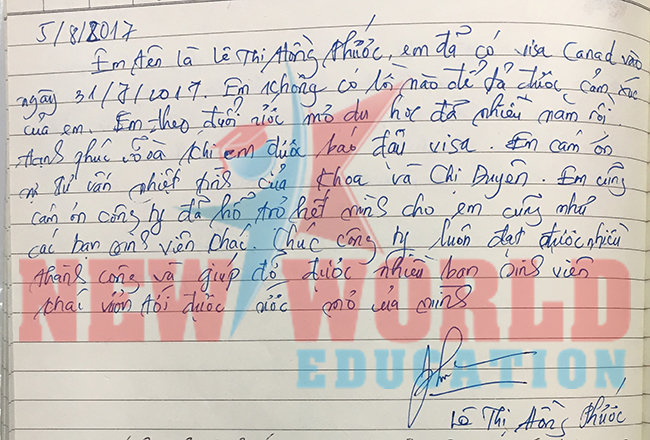 5/8/2017
Em tên là Lê Thị Hồng Phước, em đã có visa Canad vào
ngày 31/7/2017. Em không có lời nào để tả được cảm xúc
của em. Em theo đuổi ước mơ du học đã nhiều năm rồi
hạnh phúc vỡ oà khi em được báo đậu visa. Em cảm ơn
sự tư vấn nhiệt tình của Khoa và Chị Duyên. Em cũng
cảm ơn công ty đã hỗ trợ hết mình cho em cũng như
các bạn sinh viên khác. Chúc công ty luôn đạt được nhiều
thành công và giúp đỡ được nhiều bạn sinh viên
khác vươn tới được ước mơ của mình
NEW WORLD
EDUCATION
Lê Thị Hồng Phước